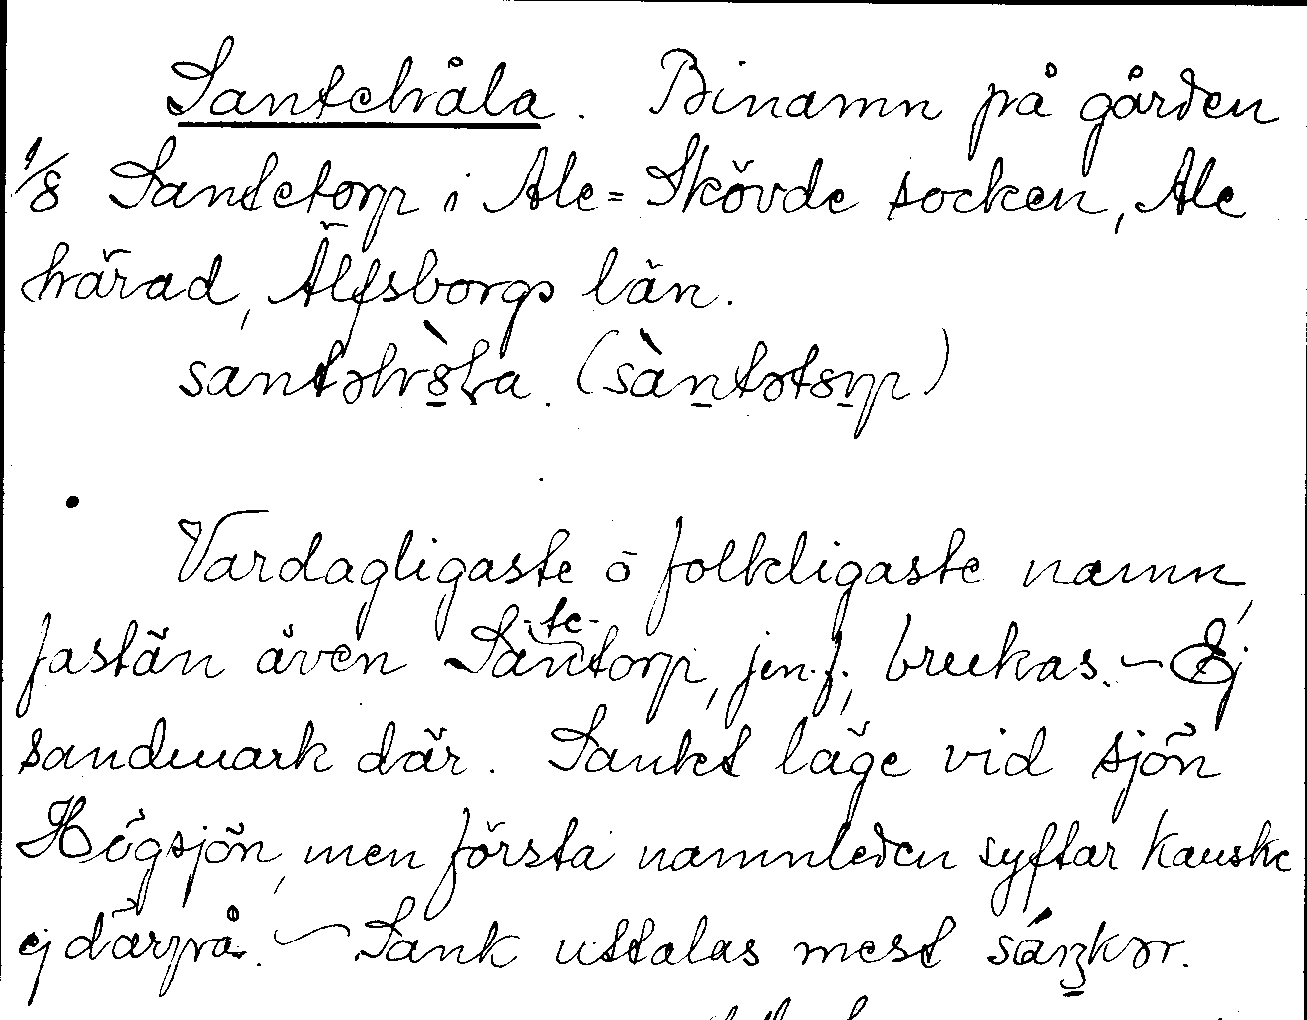 Santehåla. Binamn på gården
1/8 Santetorp i Ale=Skövde socken, Ale
härad, Älfsborgs län.
Vardagligaste o folkligaste namn,
fastän även Säntorp, -te- jm.f., brukas. – Ej
sandmark där. Sankt läge vid sjön
Högsjön, men första namnleden syftar kanske
ej därpå. – Sank uttalas mest